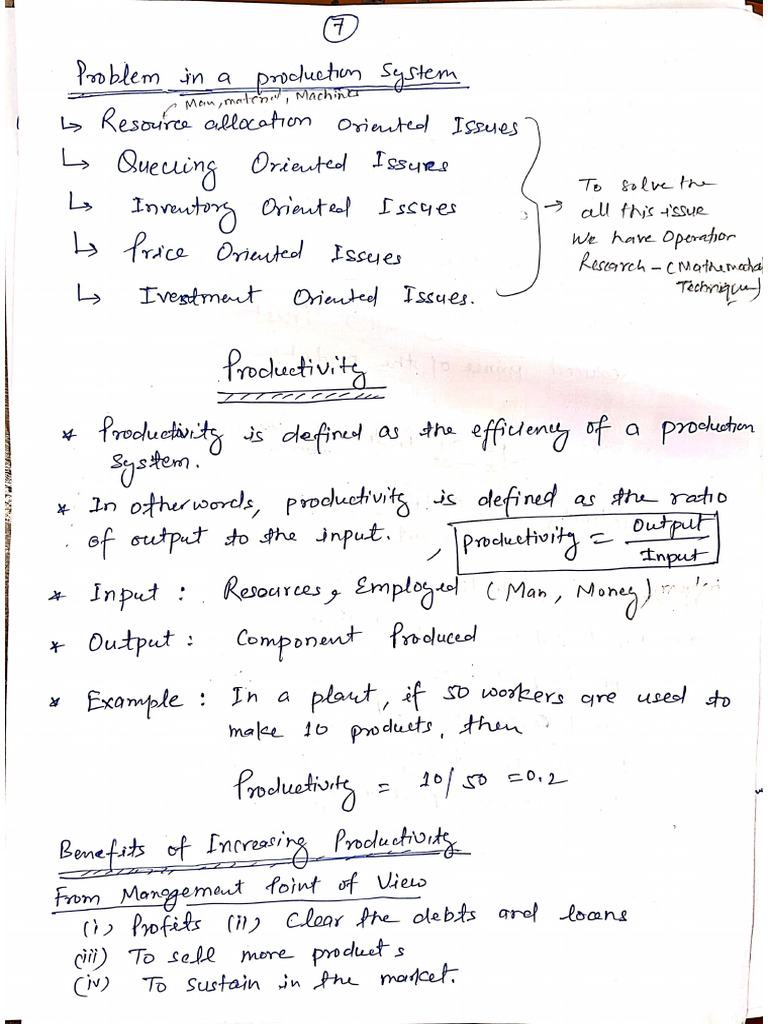 7
Problem in a production System
Man, material, Machines
↳ Resource allocation Oriented Issues
↳ Queuing Oriented Issues
↳ Inventory Oriented Issues
↳ Price Oriented Issues
↳ Ivestment Oriented Issues.
→ To solve the
all this issue
We have Operation
Research - (Mathemechal
Technique)
Productivity
* Productivity is defined as the efficiency of a production
System.
* In otherwords, productivity is defined as the ratio
of output to the input.
Productivity = Output / Input
* Input : Resources, Employed (Man, Money)
* Output : Component Produced
* Example : In a plant, if 50 workers are used to
make 10 products, then
Productivity = 10/50 = 0.2
Benefits of Increasing Productivity
From Management Point of View
(i) Profits (ii) Clear the debts and loans
(iii) To sell more products
(iv) To sustain in the market.